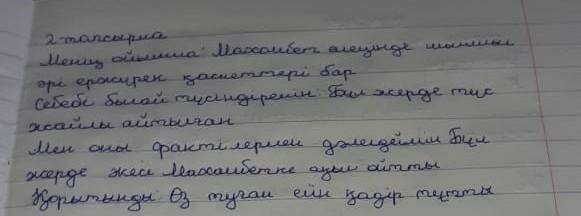 2-тапсырма
Менің ойымша Махамбет өлеңінде шыншыл
әрі ержүрек қасиеттері бар
Себебі былай түсіндіремін Бұл жерде түс
жайлы айтылған
Мен оны фактілермен дәлелдеймін Бұл
жерде Махамбетке ақыл айтты
Қорытынды Өз туған елін қадір тұтты